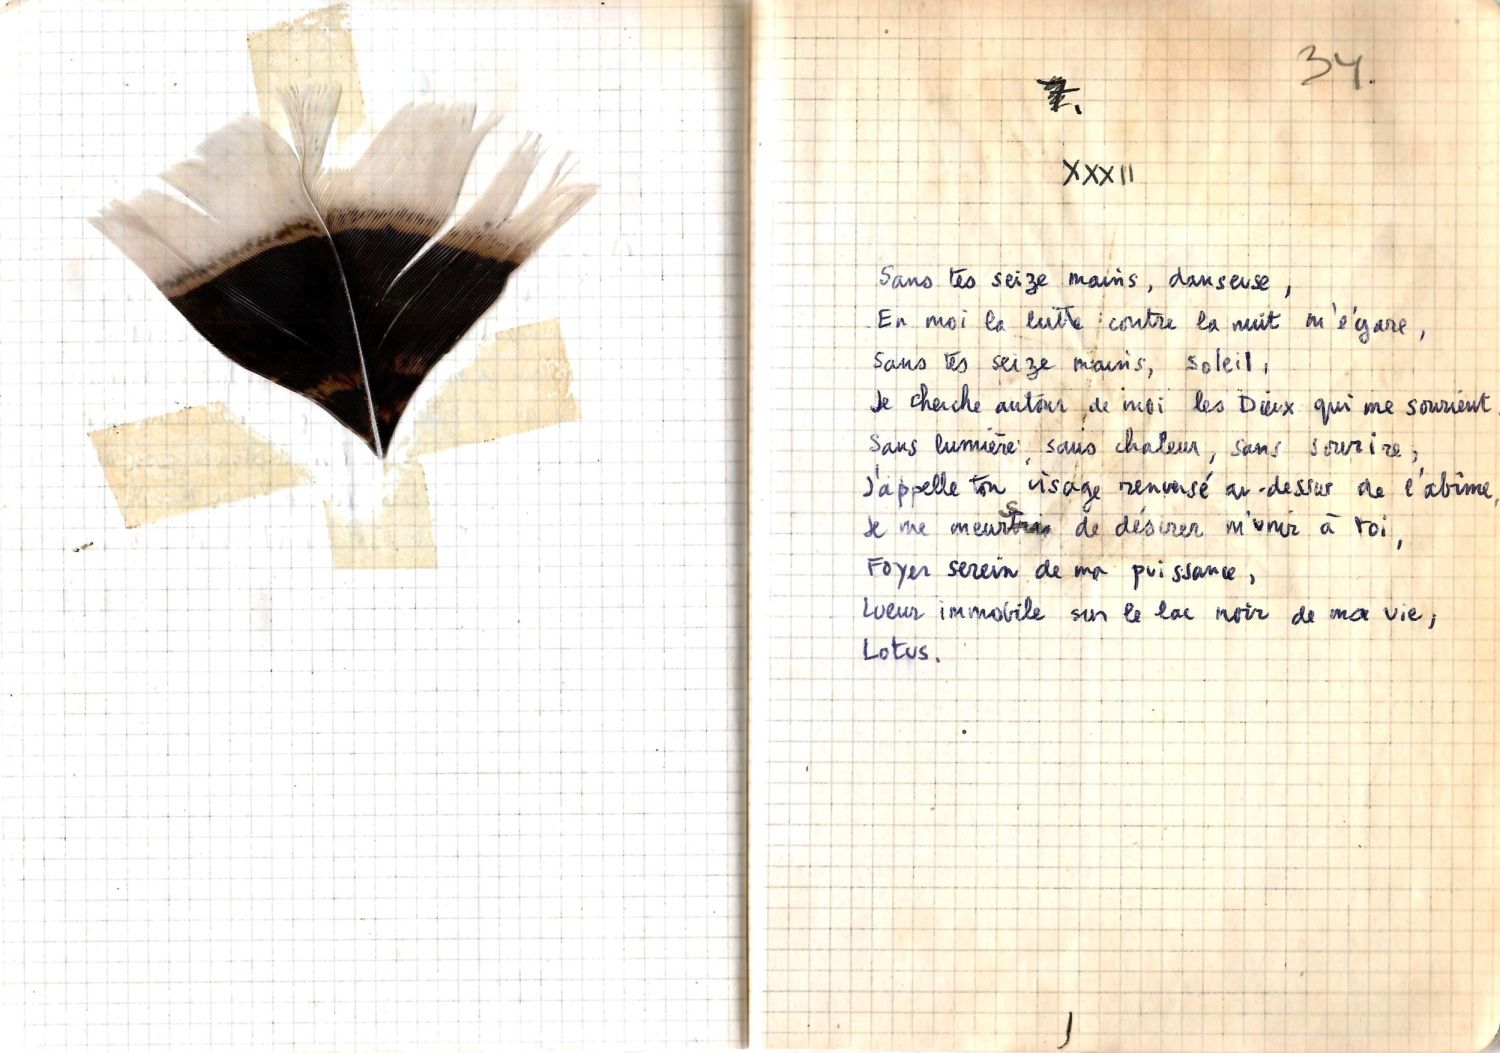 34.
7.
XXXII
Sans tes seize mains, danseuse,
En moi la lutte contre la nuit m'égare,
Sans tes seize mains, soleil,
Je cherche autour de moi les Dieux qui me sourient.
Sans lumière, sans chaleur, sans sourire,
J'appelle ton visage renversé au-dessus de l'abîme,
Je me meurs de désirer m'unir à toi,
Foyer serein de ma puissance,
Lueur immobile sur le lac noir de ma vie,
Lotus.